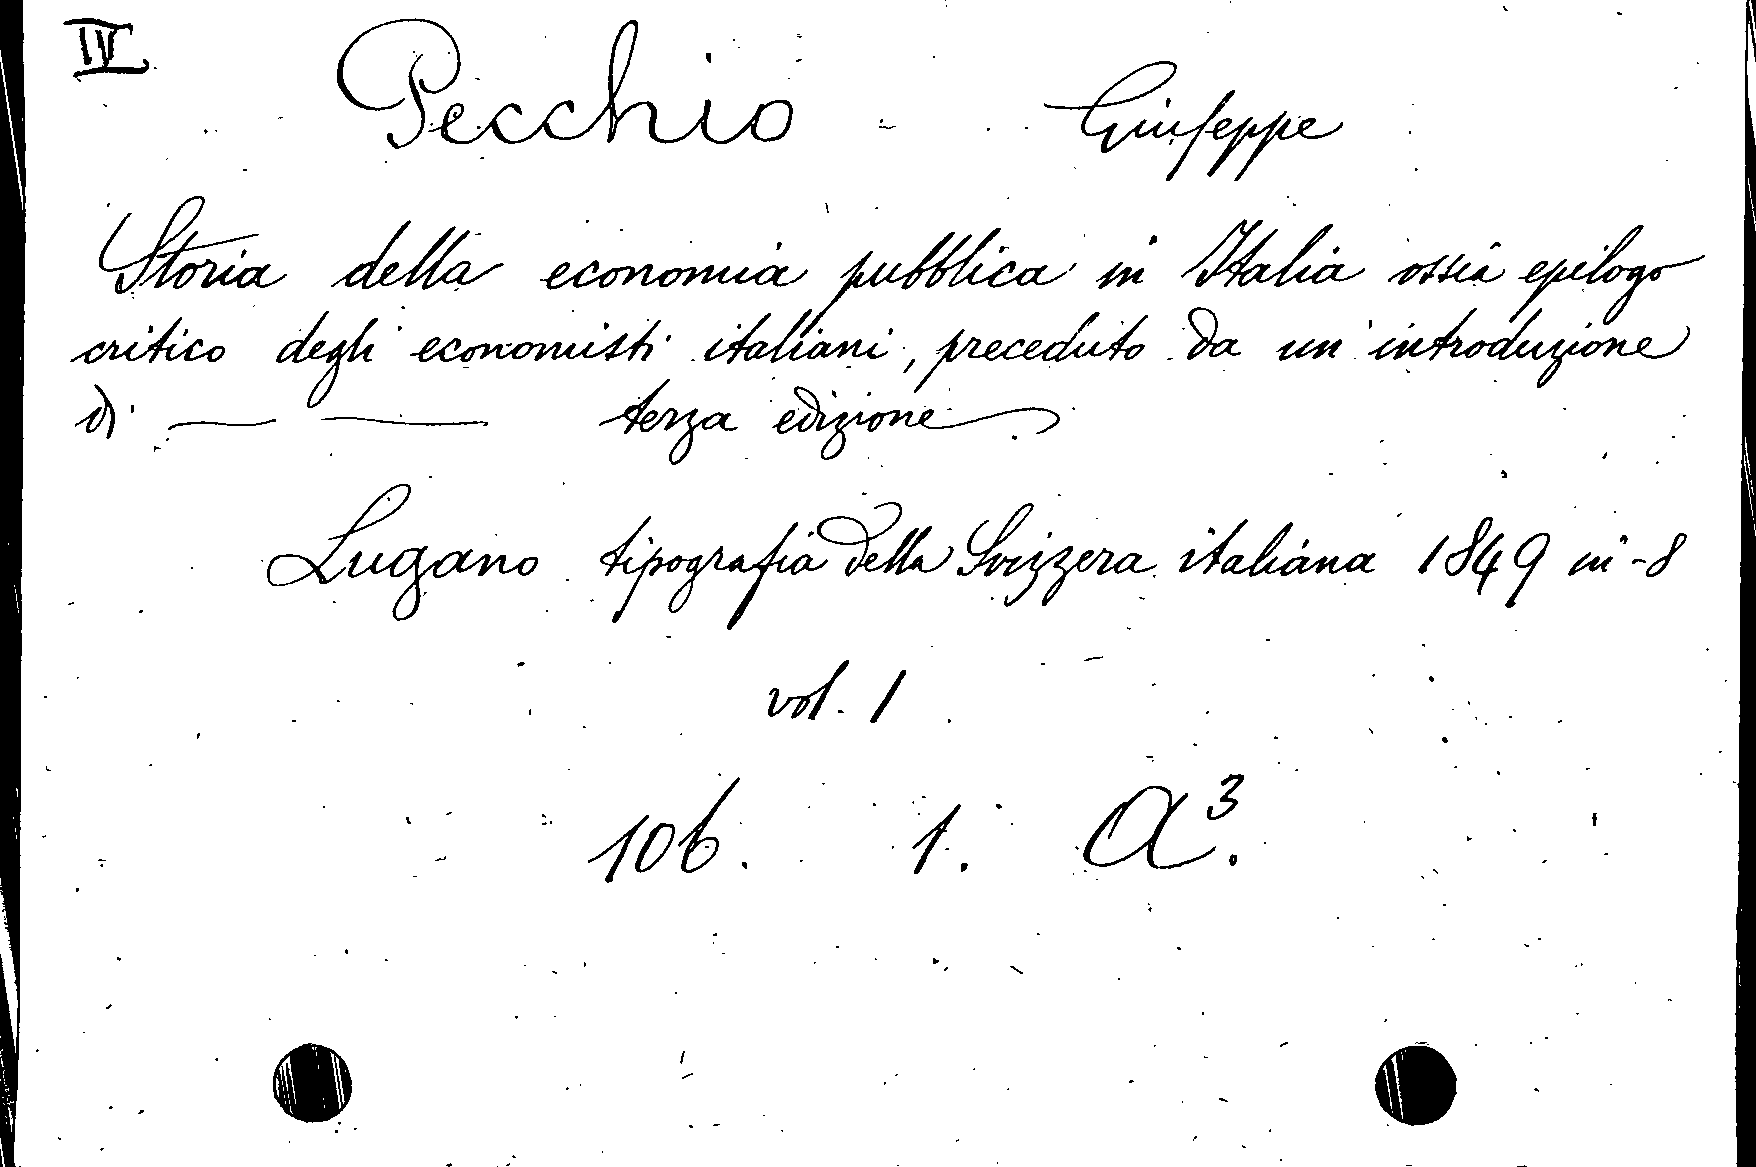 IV
Pecchio - Giuseppe
Storia della economia pubblica in Italia ossia epilogo
critico degli economisti italiani, preceduto da un introduzione
di — — terza edizione
Lugano tipografia della Svizzera italiana 1849 in-8
vol. 1
106. 1. A³.